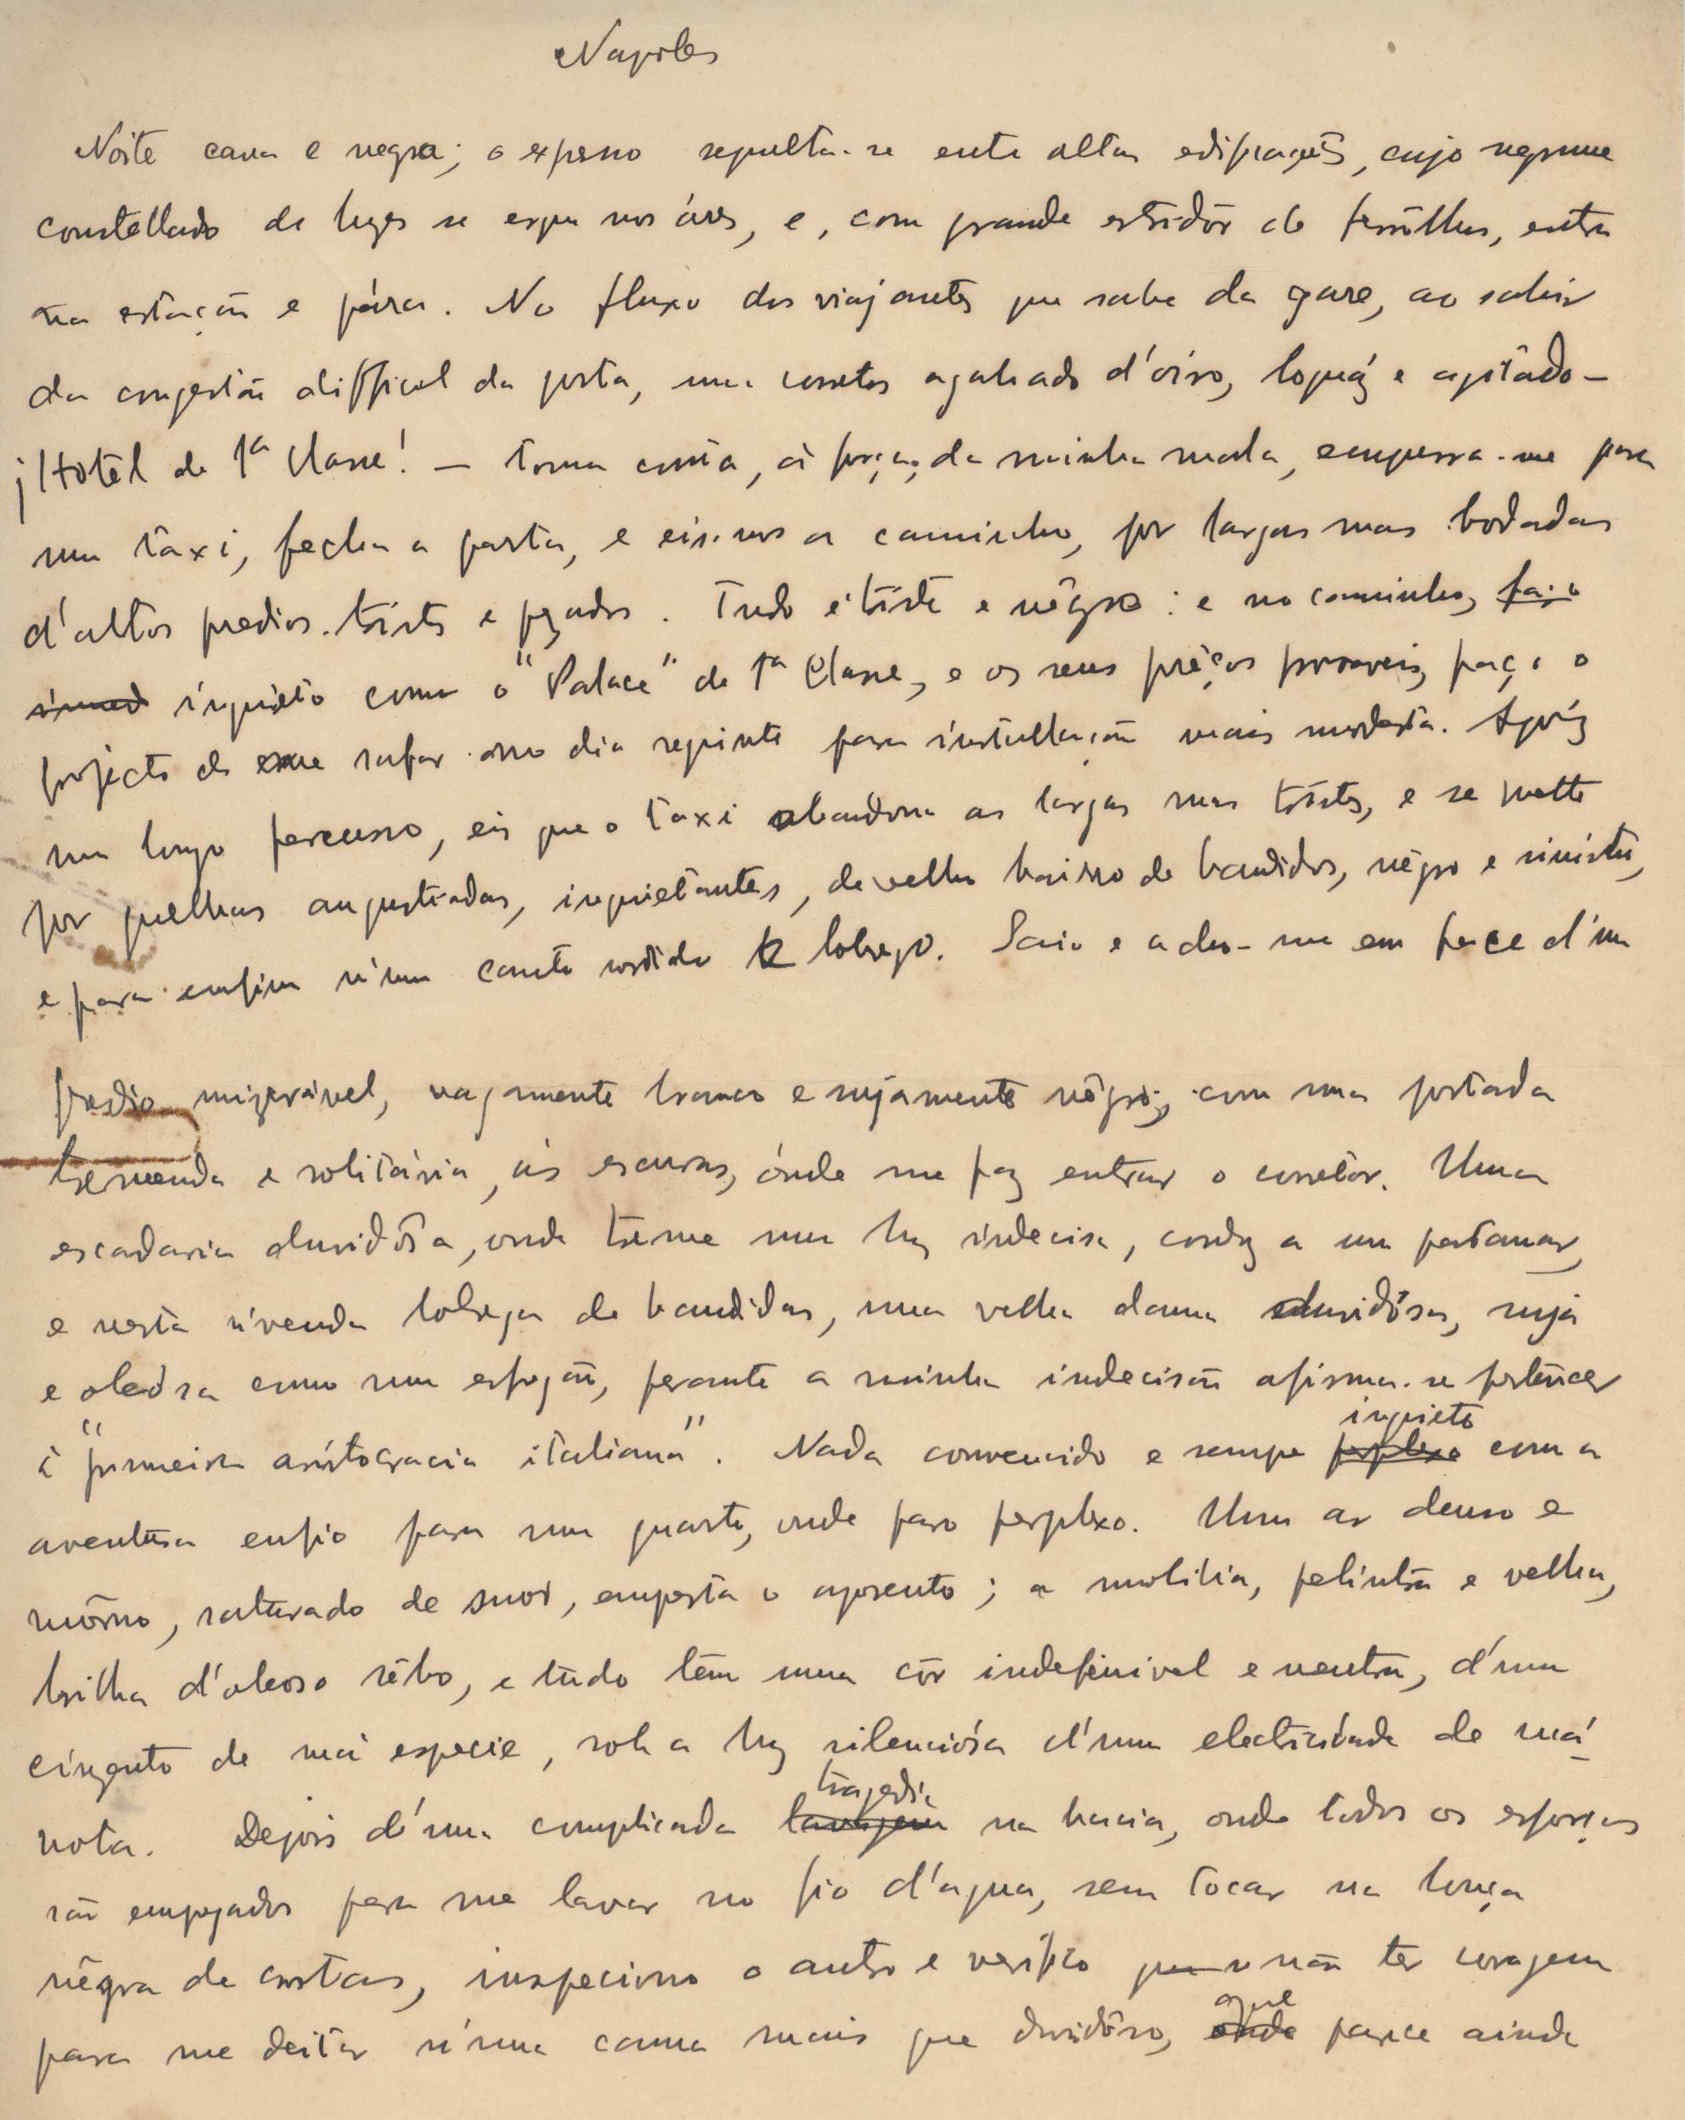 Napoles
Noite cava e negra; o expresso sepulta-se entre altas edificações, cujo negrume
constellado de luzes se ergue nos áres, e, com grande estridôr de ferrôlhos, entra
na estação e pára. No fluxo dos viajantes que sahe da gare, ao sahir
da congestão difficil da porta, um corretor agaloado d'óiro, loquáz e agitâdo –
¡Hotel de 1ª Classe! – toma conta, á força, da minha mala, empurra-me para
um taxi, fecha a porta, e eis-nos a caminho, por largas ruas bordadas
d'altos predios tristes e pezados. Tudo é triste e nêgro: e no caminho, faço
inquiéto como o "Palace" de 1ª Classe, e os seus prêços provaveis, faço o
projecto de me safar no dia seguinte para installação mais modesta. Apóz
um longo percurso, eis que o taxi abandona as largas ruas tristes, e se mette
por quelhas angustiadas, inquietantes, de velho bairro de bandidos, nêgro e sinistro,
e pára emfim n'um canto sordido e lobrego. Saio e acho-me em face d'um
predio mizerável, vagamente branco e sujamente nêgro, com uma portada
tremenda e solitária, ás escuras, ónde me faz entrar o corretôr. Uma
escadaria duvidôsa, onde treme uma luz indecisa, conduz a um patamar,
e nesta vivenda lobrega de bandidos, uma velha dama duvidôsa, suja
e oleósa como um esfregão, perante a minha indecisão afirma-se pertencer
á "primeira aristocracia italiana". Nada convencido e sempre perplexo inquieto com a
aventura enfio para um quarto, onde paro perplexo. Um ar denso e
môrno, saturado de suor, empesta o aposento; a mobilia, pelintra e velha,
brilha d'oleoso sêbo, e tudo têm uma côr indefinivel e neutra, d'um
cinzento de má especie, sob a luz silenciósa d'uma electricidade de má
nota. Depois d'uma complicada lavagem tragedia na bacia, onde todos os esforços
são empregados para me lavar no fio d'agua, sem tocar na louça
nêgra de crostas, inspeciono o antro e verifico não ter coragem
para me deitar n'uma cama mais que duvidôsa, onde que parece ainda